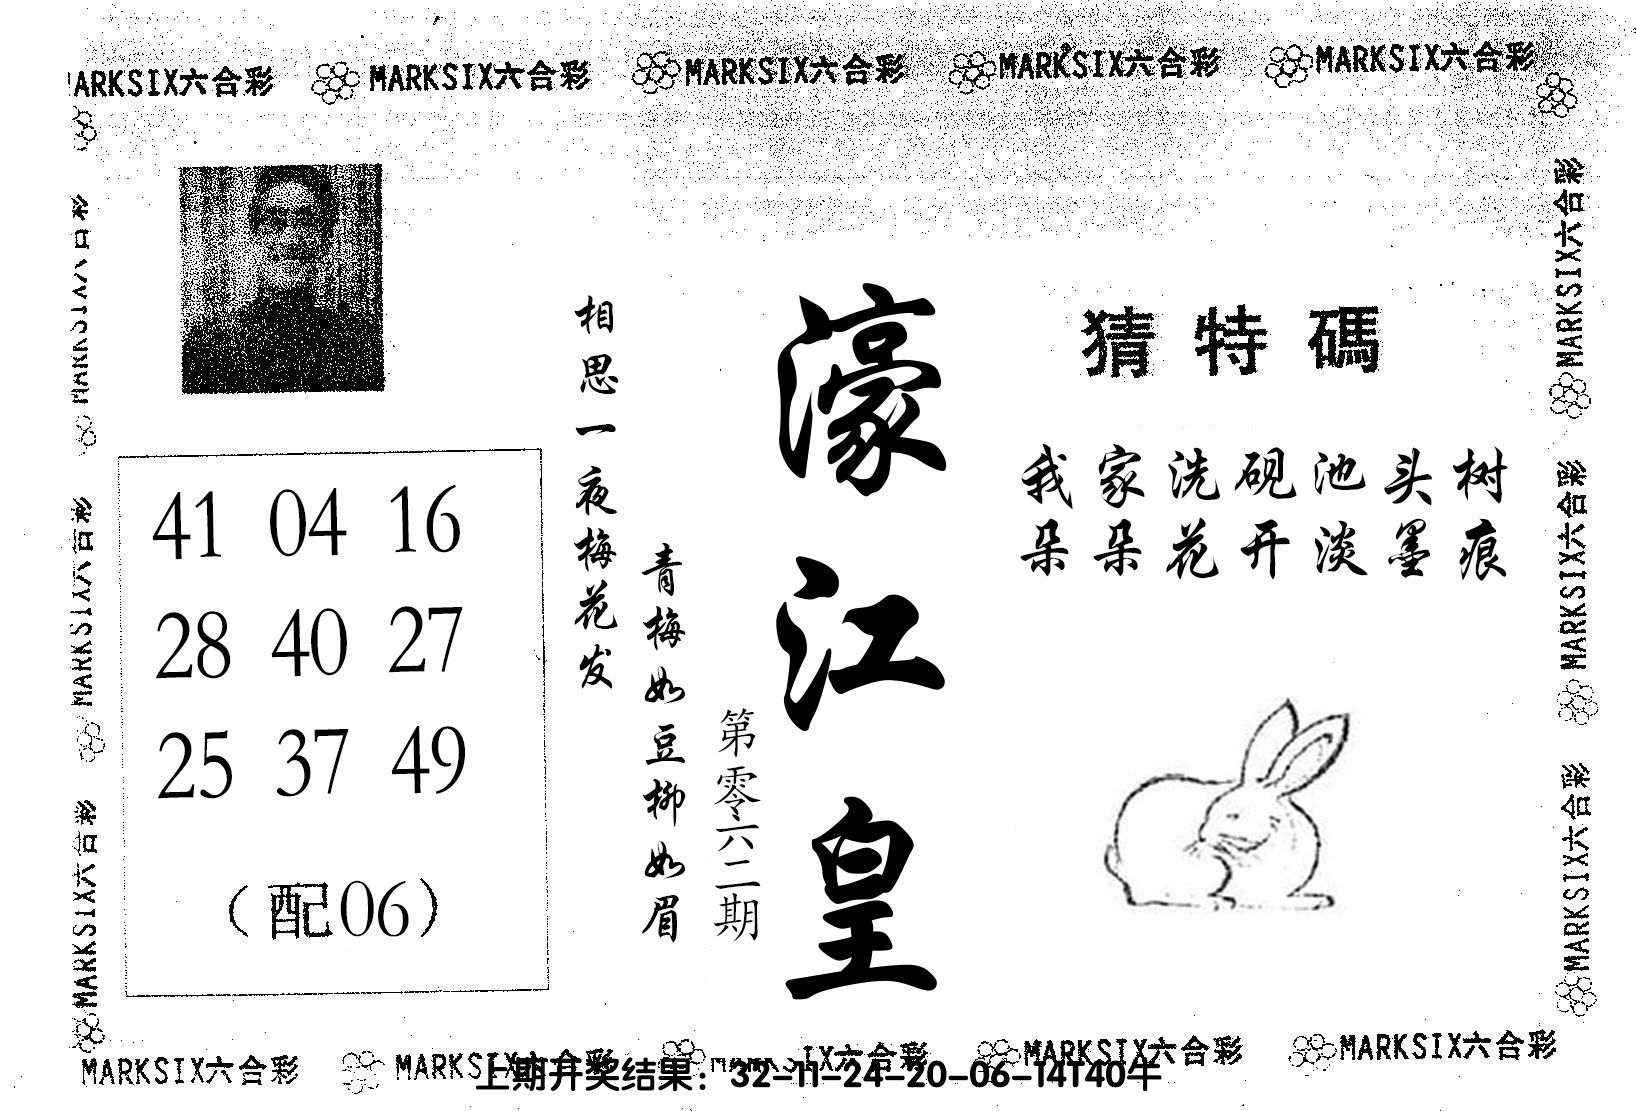 MARKSIX六合彩 MARKSIX六合彩 MARKSIX六合彩 MARKSIX六合彩 MARKSIX六合彩
猜特碼
我家洗砚池头树
朵朵花开淡墨痕
濠江皇
第零六二期
青梅如豆柳如眉
相思一夜梅花发
41 04 16
28 40 27
25 37 49
（配06）
MARKSIX六合彩
MARKSIX六合彩
MARKSIX六合彩
MARKSIX六合彩
MARKSIX六合彩
MARKSIX六合彩
MARKSIX六合彩 MARKSIX六合彩 MARKSIX六合彩 MARKSIX六合彩 MARKSIX六合彩
上期开奖结果：32-11-24-20-06-14T40牛